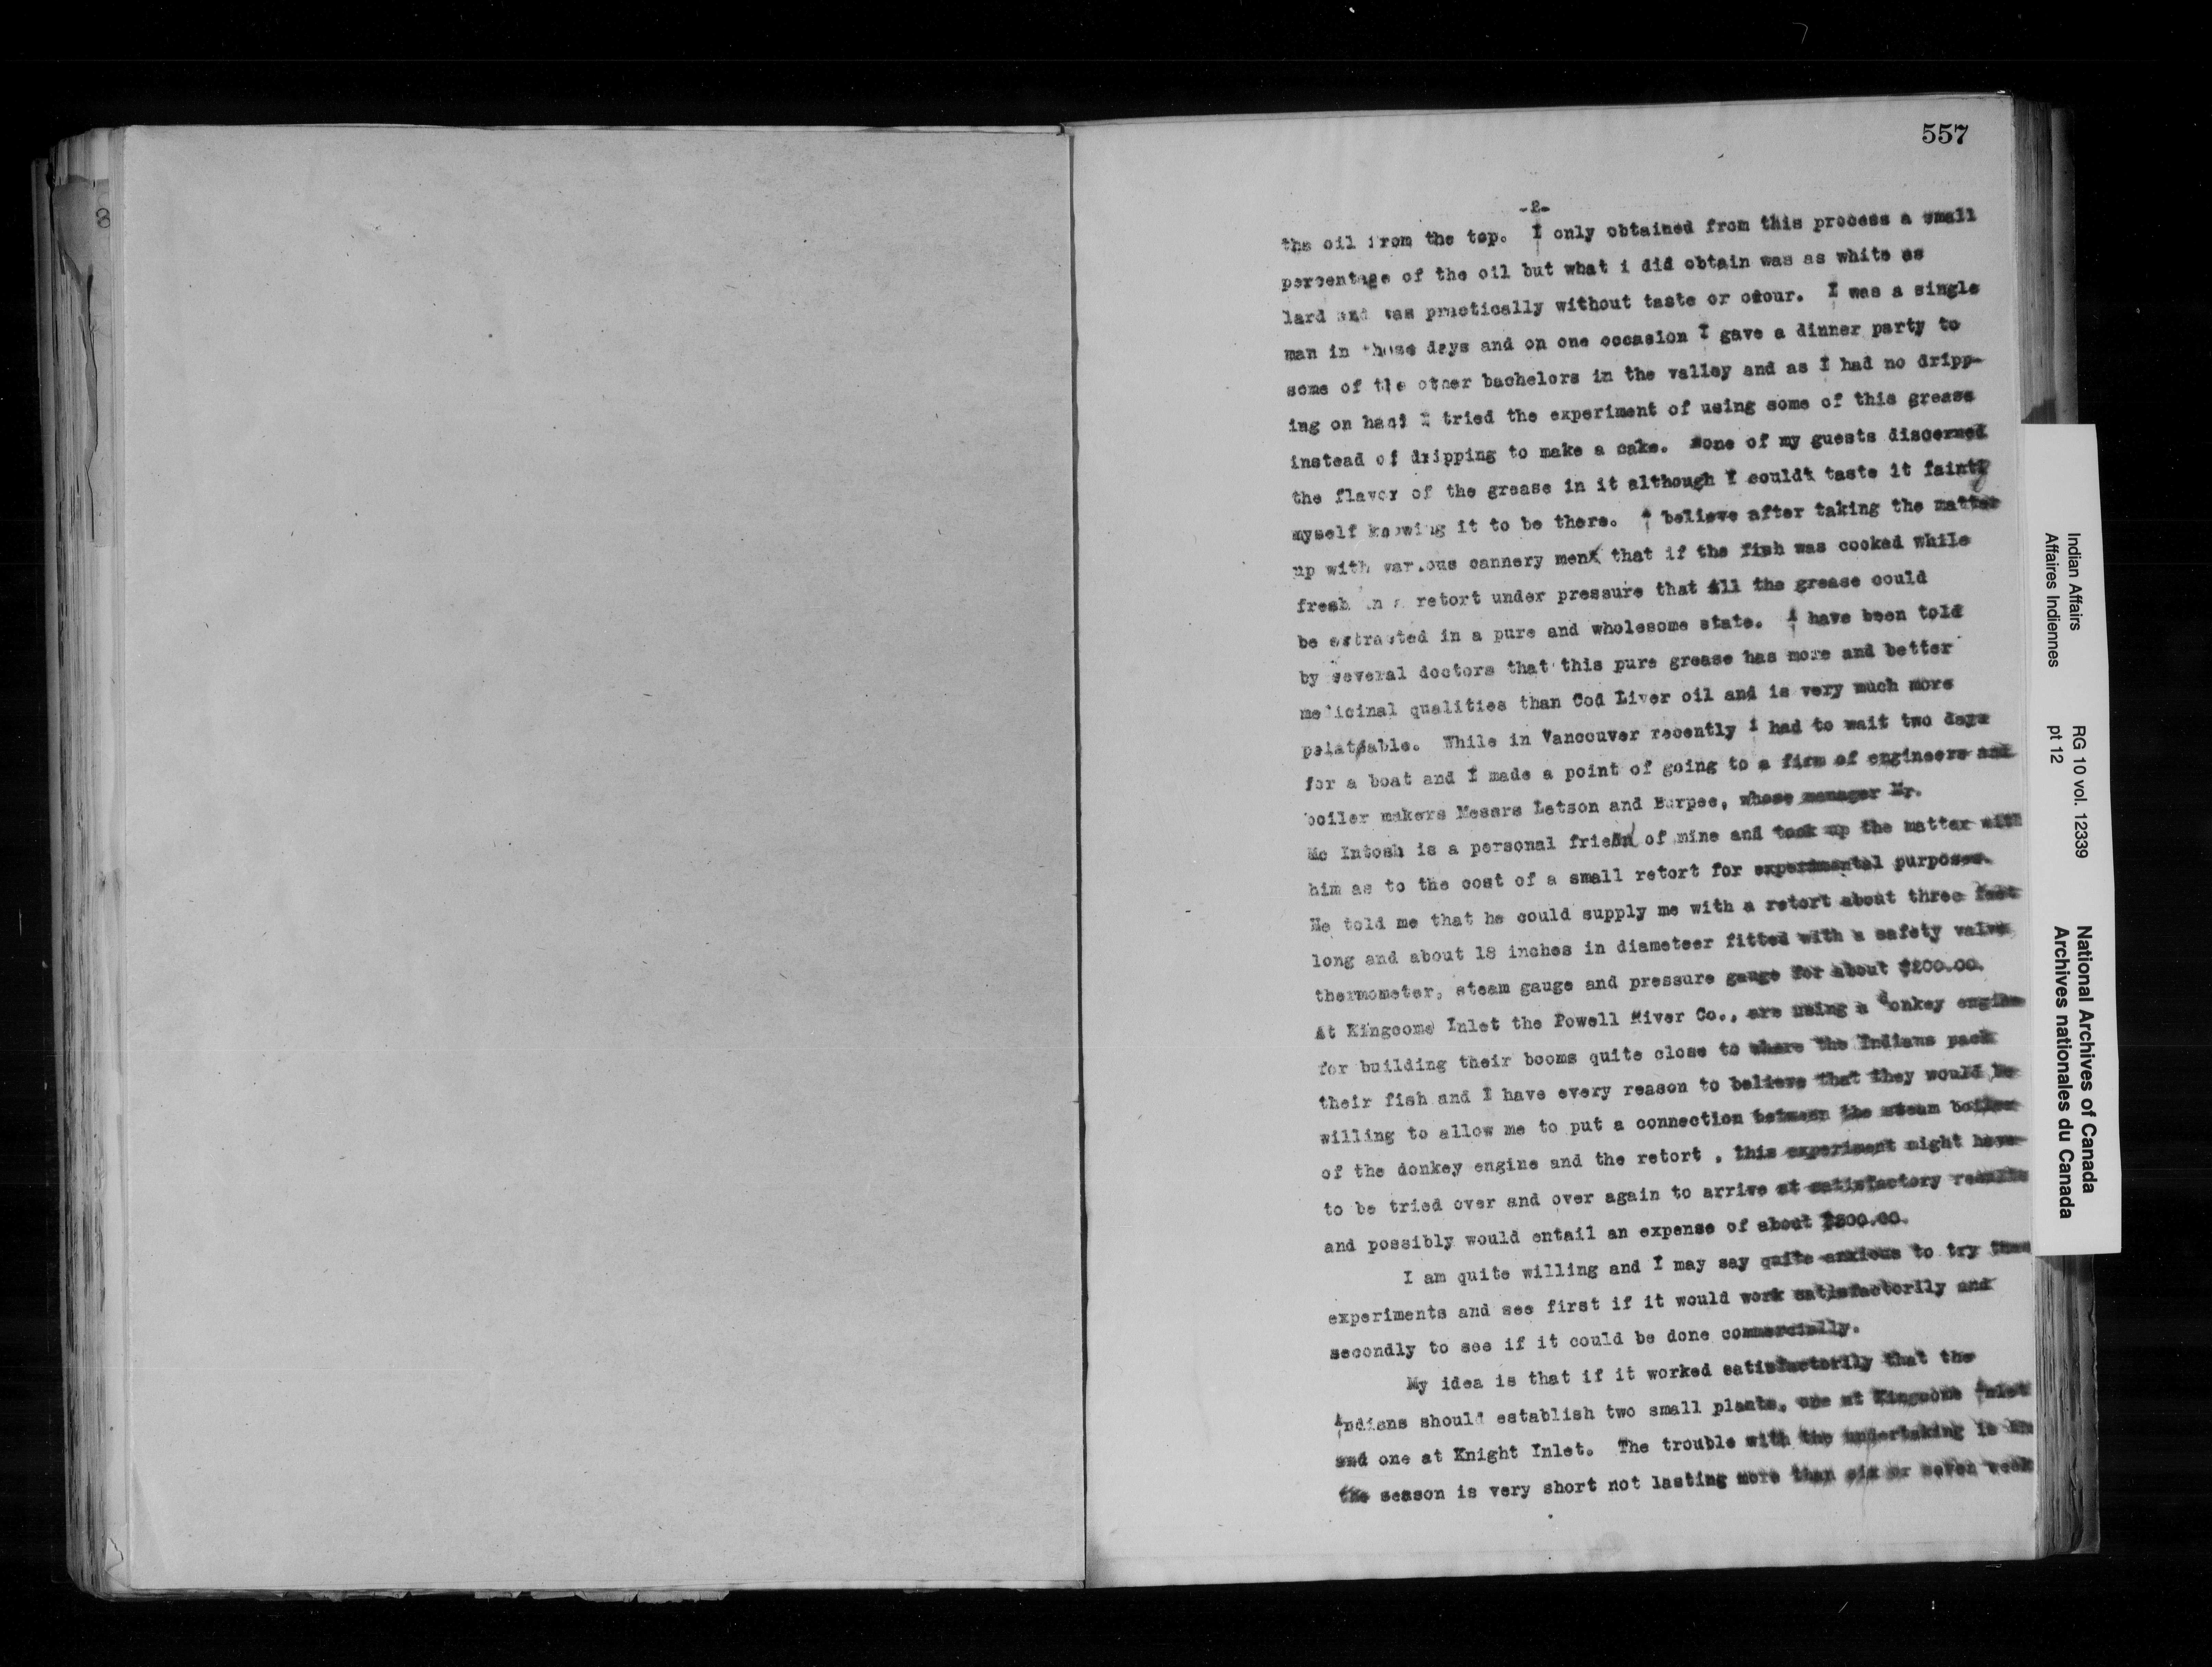 8
557
-2-
the oil from the top. I only obtained from this process a small
percentage of the oil but what i did obtain was as white as
lard and was practically without taste or odour. I was a single
man in those days and on one occasion I gave a dinner party to
some of the other bachelors in the valley and as I had no dripp-
ing on hand I tried the experiment of using some of this grease
instead of dripping to make a cake. None of my guests discerned
the flavor of the grease in it although I couldt taste it faintly
myself knowing it to be there. I believe after taking the matter
up with various cannery men that if the fish was cooked while
fresh in a retort under pressure that all the grease could
be extracted in a pure and wholesome state. I have been told
by several doctors that this pure grease has more and better
medicinal qualities than Cod Liver oil and is very much more
pelatable. While in Vancouver recently i had to wait two days
for a boat and I made a point of going to a firm of engineers and
boiler makers Messrs Letson and Burpee, whose manager Mr.
Mc Intosh is a personal friend of mine and took up the matter with
him as to the cost of a small retort for experimental purposes.
He told me that he could supply me with a retort about three feet
long and about 18 inches in diameteer fitted with a safety valve
thermometer, steam gauge and pressure gauge for about $200.00.
At Kingcome Inlet the Powell River Co., are using a donkey engine
for building their booms quite close to where the Indians pack
their fish and I have every reason to believe that they would be
willing to allow me to put a connection between the steam boiler
of the donkey engine and the retort , this experiment might have
to be tried over and over again to arrive at satisfactory results
and possibly would entail an expense of about
I am quite willing and I may say quite anxious to try
experiments and see first if it would work satisfactorily and
secondly to see if it could be done commercially.
My idea is that if it worked satisfactorily that the
Indians should establish two small plants, one at Kingcome Inlet
and one at Knight Inlet. The trouble with the undertaking is
the season is very short not lasting more than six or seven week
Indian Affairs RG 10 vol. 12339 National Archives of Canada
Affaires Indiennes pt 12 Archives nationales du Canada